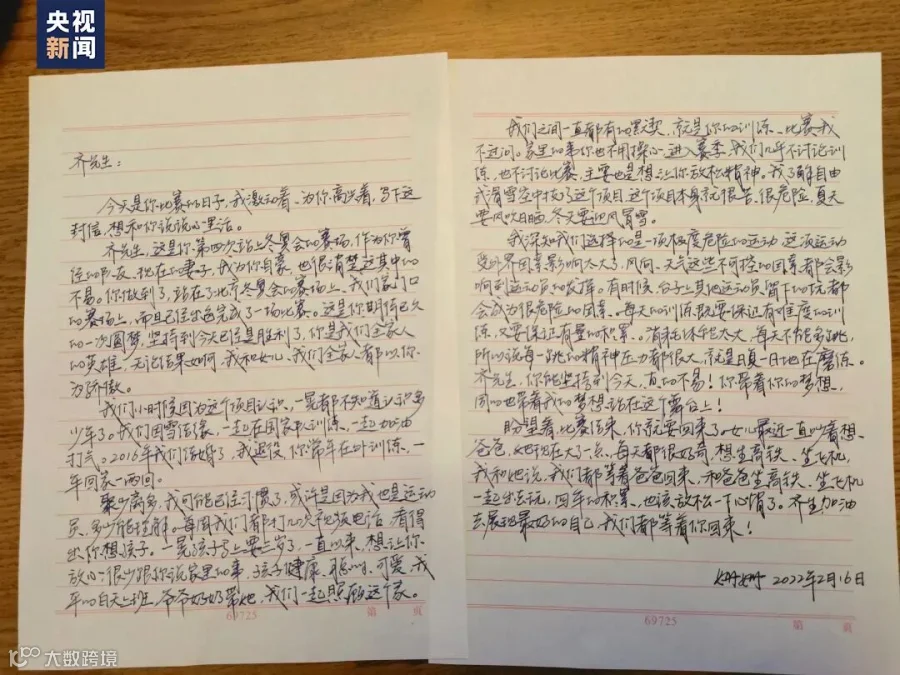 央视
新闻
齐先生：
今天是你比赛的日子，我激动着、为你高兴着，写下这
封信，想和你说说心里话。
齐先生，这是你第四次站上冬奥会的赛场，作为你曾
经的队友、现在的妻子，我为你自豪，也很清楚这其中的
不易。你做到了，站在了北京冬奥会的赛场上、我们家门口
的赛场上，而且已经出色完成了一场比赛。这是你期待已久
的一次圆梦，坚持到今天已经是胜利了，你是我们全家人
的英雄，无论结果如何，我和女儿、我们全家人都以你
为骄傲。
我们小时候因为这个项目认识，一晃都不知道认识多
少年了。我们因雪结缘，一起在国家队训练、一起加油
打气。2016年我们结婚了，我退役，你常年在外训练，一
年回家一两回。
聚少离多，我可能已经习惯了，或许是因为我也是运动
员，多少能理解。每周我们都打几次视频电话，看得
出你想孩子。一晃孩子马上要上岁了，一直以来，想让你
放心，很少跟你说家里的事，孩子健康、聪明、可爱，我
平时白天上班，爷爷奶奶带她，我们一起照顾这个家。
69725 第 页
我们之间一直都有的默契，就是你的训练、比赛我
不过问。家里的事你也不用操心，进入赛季，我们几乎不讨论训
练，也不讨论比赛，主要也是想让你放松精神。我了解自由
式滑雪空中技巧这个项目，这个项目本身就很苦、很危险，夏天
要风吹日晒，冬天要迎风冒雪。
我深知我们选择的是一项极度危险的运动，这项运动
受外界因素影响太大了，风向、天气这些不可控的因素都会影
响到运动员的发挥。有时候，台子上其他运动员留下的坑都
会成为很危险的因素。每天的训练，既要保证有难度的训
练，又要保证有量的积累。消耗体能太大，每天不能多跳，
所以说每一跳的精神压力都很大，就是日复一日地在磨练。
齐先生，你能坚持到今天，真的不易！你带着你的梦想，
同时也带着我的梦想站在这个舞台上！
盼望着，比赛结束，你就要回来了。女儿最近一直叫着想
爸爸，她现在大了一点，每天都很好奇，想坐高铁、坐飞机，
我和她说，我们都等着爸爸回来，和爸爸坐高铁、坐飞机
一起出去玩，四年的积累，也该放松一下心情了。齐先生加油
去展现最好的自己，我们都等着你回来！
2022年2月16日
69725 第 页
大数跨境